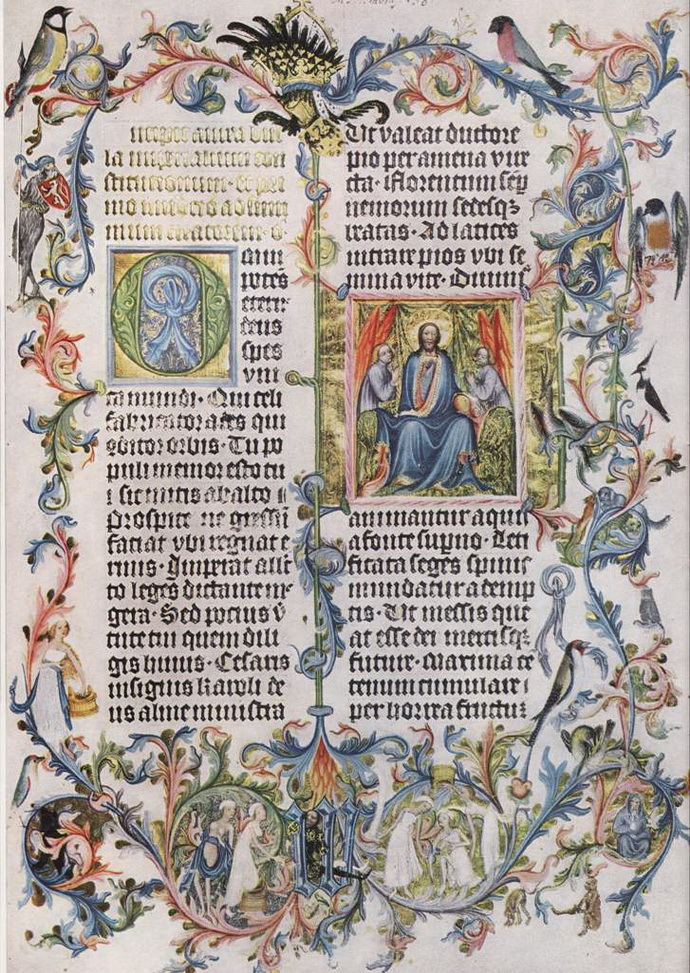 Incipit aurea bul
la imperialium con
stitucionum · et pri
mo
Omni
potens
eterne
deus
spes
vni
ca mundi · Qui celi
fabricator ades qui
conditor orbis · Tu po
puli memor esto tu
i sic mitis ab alto
Prospice ne gressū
faciat vbi regnat e
rinis · Imperat allec
to leges dictante me
gera · Sed pocius v̄
tute tui quem dili
gis huius · Cesaris
insignis karoli de
us alme ministra
Ut valeat ductore
pio per amena vire
cta · Florentum semp̄
nemorum sedesqꝫ
beatas · Ad latices
intrare pios vbi se
mina vite · Diuinis
animantur aquis
a fonte sup̄no · Leti
ficata seges spinis
mundatur ademp
tis · Ut messis que
at esse dei mercisqꝫ
future · Maxima ce
tenum cumulare
per horrea fructū